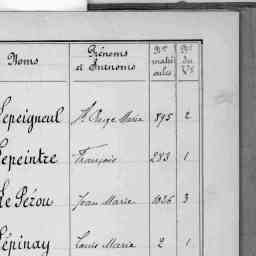 Noms Prénoms et Surnoms Nos matricules Nos du Vs
Lepeigneul Marie 895 2
Lepeintre François 283 1
Le Pérou Jean Marie 1026 3
Lépinay Louis Marie 2 1